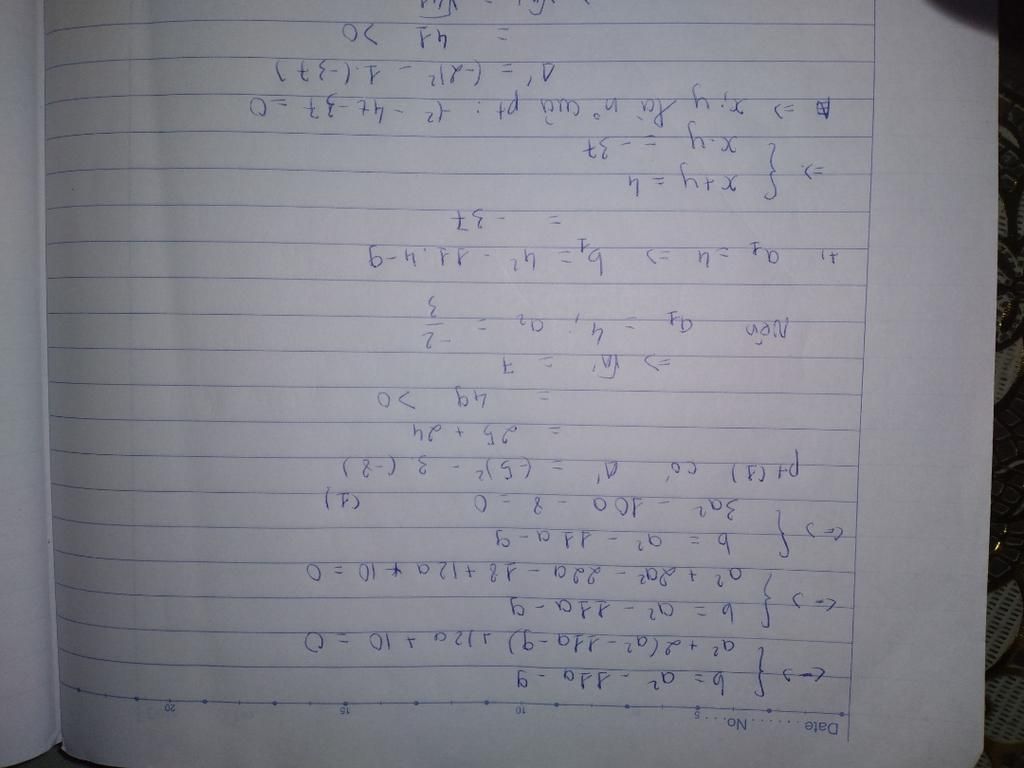 Date ........ No. ....
5 10 15 20
<=> { b = a² - 11a - 9
a² + 2(a² - 11a - 9) + 12a + 10 = 0
<=> { b = a² - 11a - 9
a² + 2a² - 22a - 18 + 12a + 10 = 0
<=> { b = a² - 11a - 9
3a² - 10a - 8 = 0 (1)
pt (1) có Δ' = (-5)² - 3 (-8)
= 25 + 24
= 49 > 0
=> √Δ' = 7
Nên a₁ = 4 ; a₂ = -2/3
+, a₁ = 4 => b₁ = 4² - 11.4 - 9
= -37
=> { x + y = 4
x.y = -37
=> x, y là n° của pt : t² - 4t - 37 = 0
Δ' = (-2)² - 1.(-37)
= 41 > 0